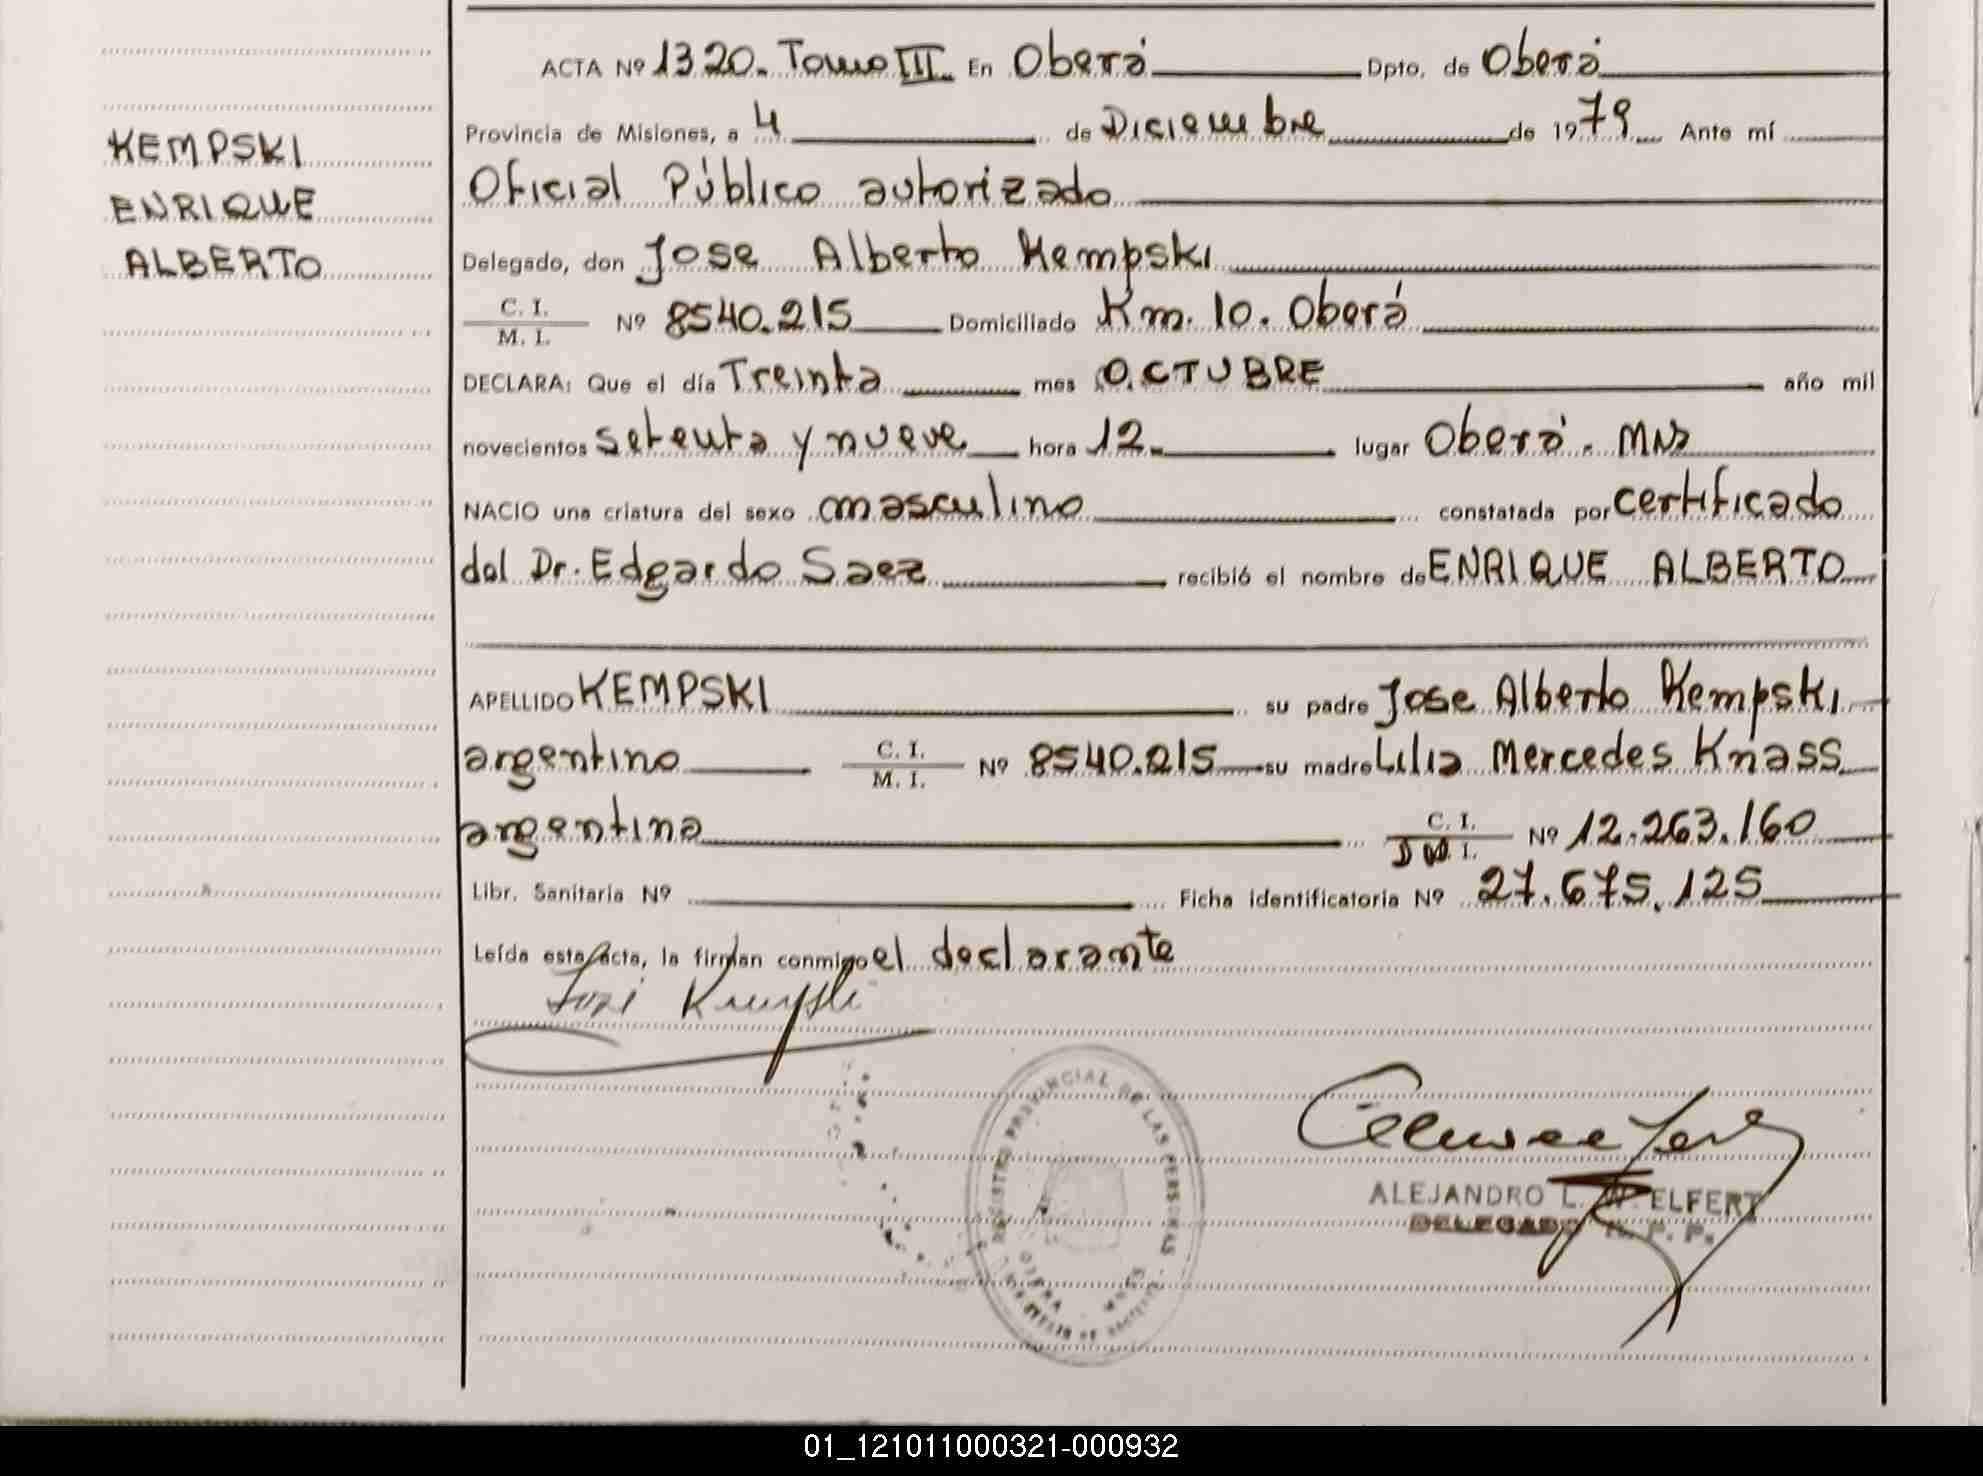 KEMPSKI
ENRIQUE
ALBERTO
ACTA Nº 1320. Tomo III. En Oberá Dpto. de Oberá
Provincia de Misiones, a 4 de Diciembre de 1979 Ante mí
Oficial Público autorizado
Delegado, don Jose Alberto Kempski
C. I.
M. I. Nº 8540.215 Domiciliado Km. 10. Oberá
DECLARA: Que el día Treinta mes OCTUBRE año mil
novecientos setenta y nueve hora 12. lugar Oberá. Mns
NACIO una criatura del sexo masculino constatada por certificado
del Dr. Edgardo Saez recibió el nombre de ENRIQUE ALBERTO
APELLIDO KEMPSKI su padre Jose Alberto Kempski
argentino C. I.
M. I. Nº 8540.215 su madre Lilia Mercedes Knass
argentina C. I.
D N. I. Nº 12.263.160
Libr. Sanitaria Nº Ficha identificatoria Nº 27.675.125
Leída esta acta, la firman conmigo el declarante
REGISTRO PROVINCIAL DE LAS PERSONAS
OBERA - MNES
ALEJANDRO L. W. ELFERT
DELEGADO R. P. P.
01_121011000321-000932